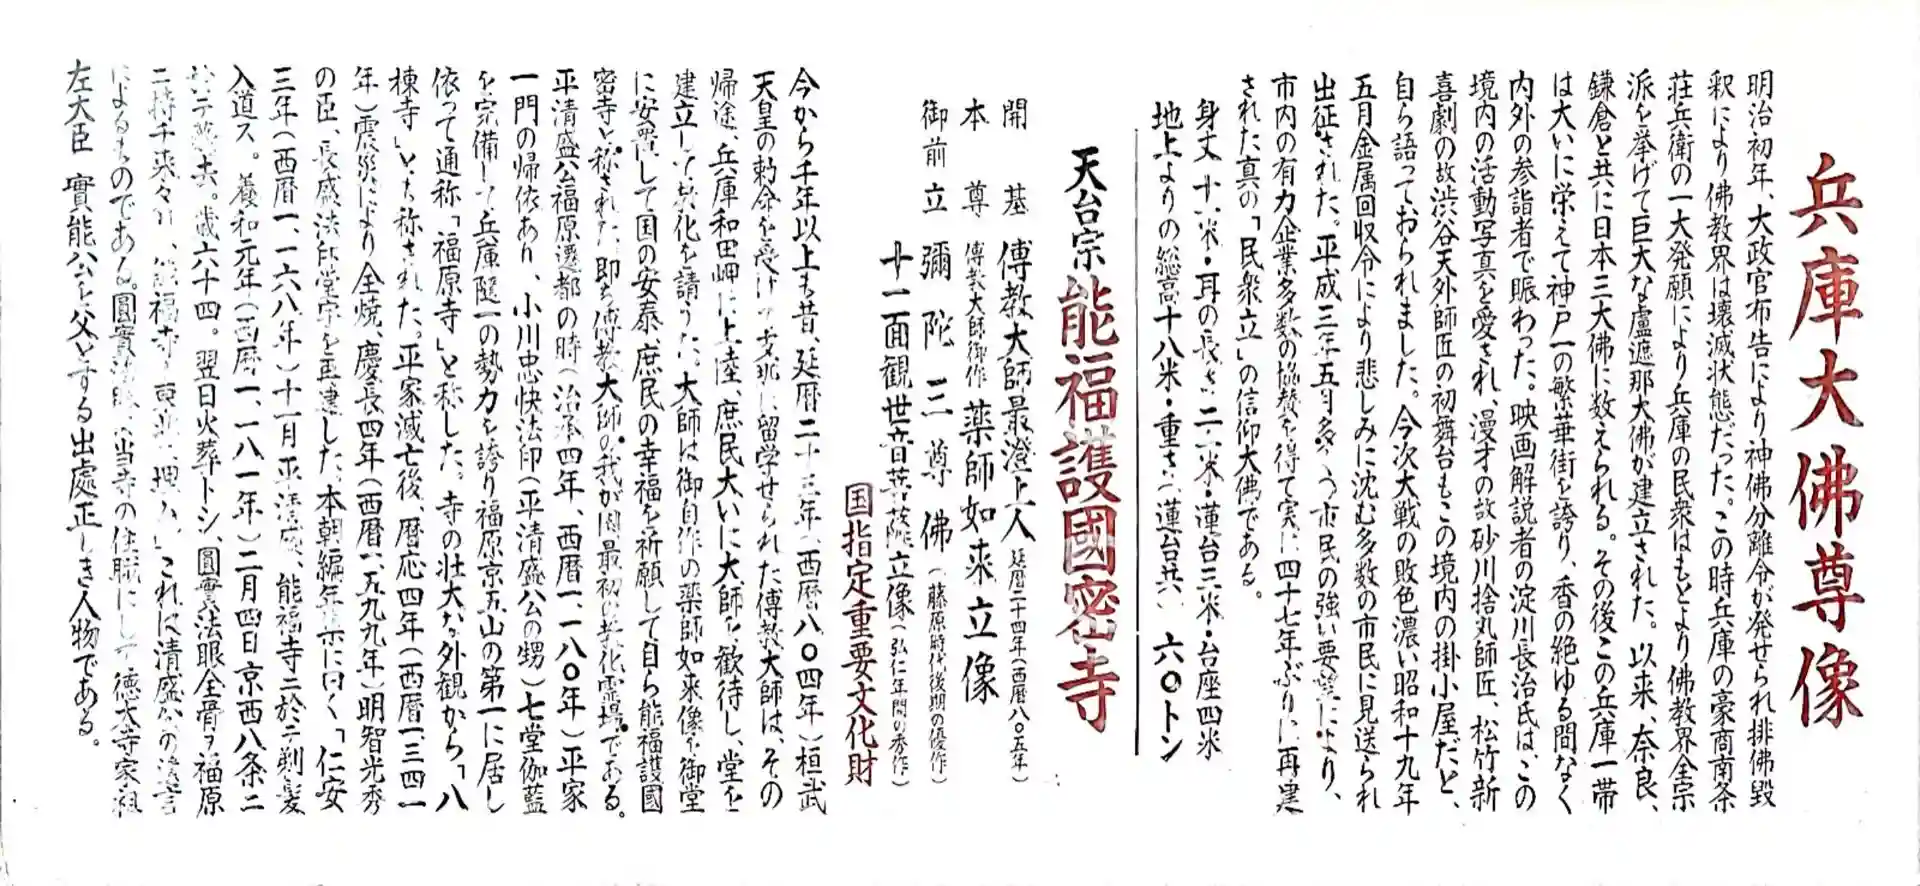 兵庫大佛尊像
明治初年、大政官布告により神佛分離令が発せられ排佛毀
釈により佛教界は壊滅状態だった。この時兵庫の豪商南条
荘兵衛の一大発願により兵庫の民衆はもとより佛教界全宗
派を挙げて巨大な盧遮那大佛が建立された。以来、奈良、
鎌倉と共に日本三大佛に数えられる。その後この兵庫一帯
は大いに栄えて神戸一の繁華街を誇り、香の絶ゆる間なく
内外の参詣者で賑わった。映画解説者の淀川長治氏は、この
境内の活動写真を愛され、漫才の故砂川捨丸師匠、松竹新
喜劇の故渋谷天外師匠の初舞台もこの境内の掛小屋だと、
自ら語っておられました。今次大戦の敗色濃い昭和十九年
五月金属回収令により悲しみに沈む多数の市民に見送られ
出征された。平成三年五月多くの市民の強い要望により、
市内の有力企業多数の協賛を得て実に四十七年ぶりに再建
された真の「民衆立」の信仰大佛である。
身丈 十一米・耳の長さ 二米・蓮台三米・台座四米
地上よりの総高十八米・重さ（蓮台共） 六〇トン
天台宗 能福護國密寺
開基 傳教大師最澄上人 延暦二十四年（西暦八〇五年）
本尊 傳教大師御作 薬師如来立像
御前立 彌陀三尊佛（藤原時代後期の優作）
十一面観世音菩薩立像（弘仁年間の秀作）
国指定重要文化財
今から千年以上も昔、延暦二十三年（西暦八〇四年）桓武
天皇の勅命を受けて支那に留学せられた傳教大師は、その
帰途、兵庫和田岬に上陸、庶民大いに大師を歓待し、堂を
建立して教化を請うた。大師は御自作の薬師如来像を御堂
に安置して国の安泰、庶民の幸福を祈願して自ら能福護國
密寺と称された。即ち傳教大師の我が国最初の教化霊場である。
平清盛公福原遷都の時（治承四年、西暦一、一八〇年）平家
一門の帰依あり、小川忠快法印（平清盛公の甥）七堂伽藍
を完備して兵庫随一の勢力を誇り福原京五山の第一に居し
依って通称「福原寺」と称した。寺の壮大な外観から「八
棟寺」とも称された。平家滅亡後、暦応四年（西暦一、三四一
年）震災により全焼、慶長四年（西暦一、五九九年）明智光秀
の臣、長盛法印堂宇を再建した。本朝編年集に曰く「仁安
三年（西暦一、一六八年）十一月平清盛、能福寺ニ於テ剃髪
入道ス。養和元年（西暦一、一八一年）二月四日京西八条ニ
於テ薨去。歳六十四。翌日火葬トシ、圓實法眼全骨ヲ福原
ニ持チ来タリ、能福寺ノ東北ニ埋ム」これは清盛公の遺言
によるものである。圓實法眼は当寺の住職にして徳大寺家祖
左大臣 實能公を父とする出處正しき人物である。